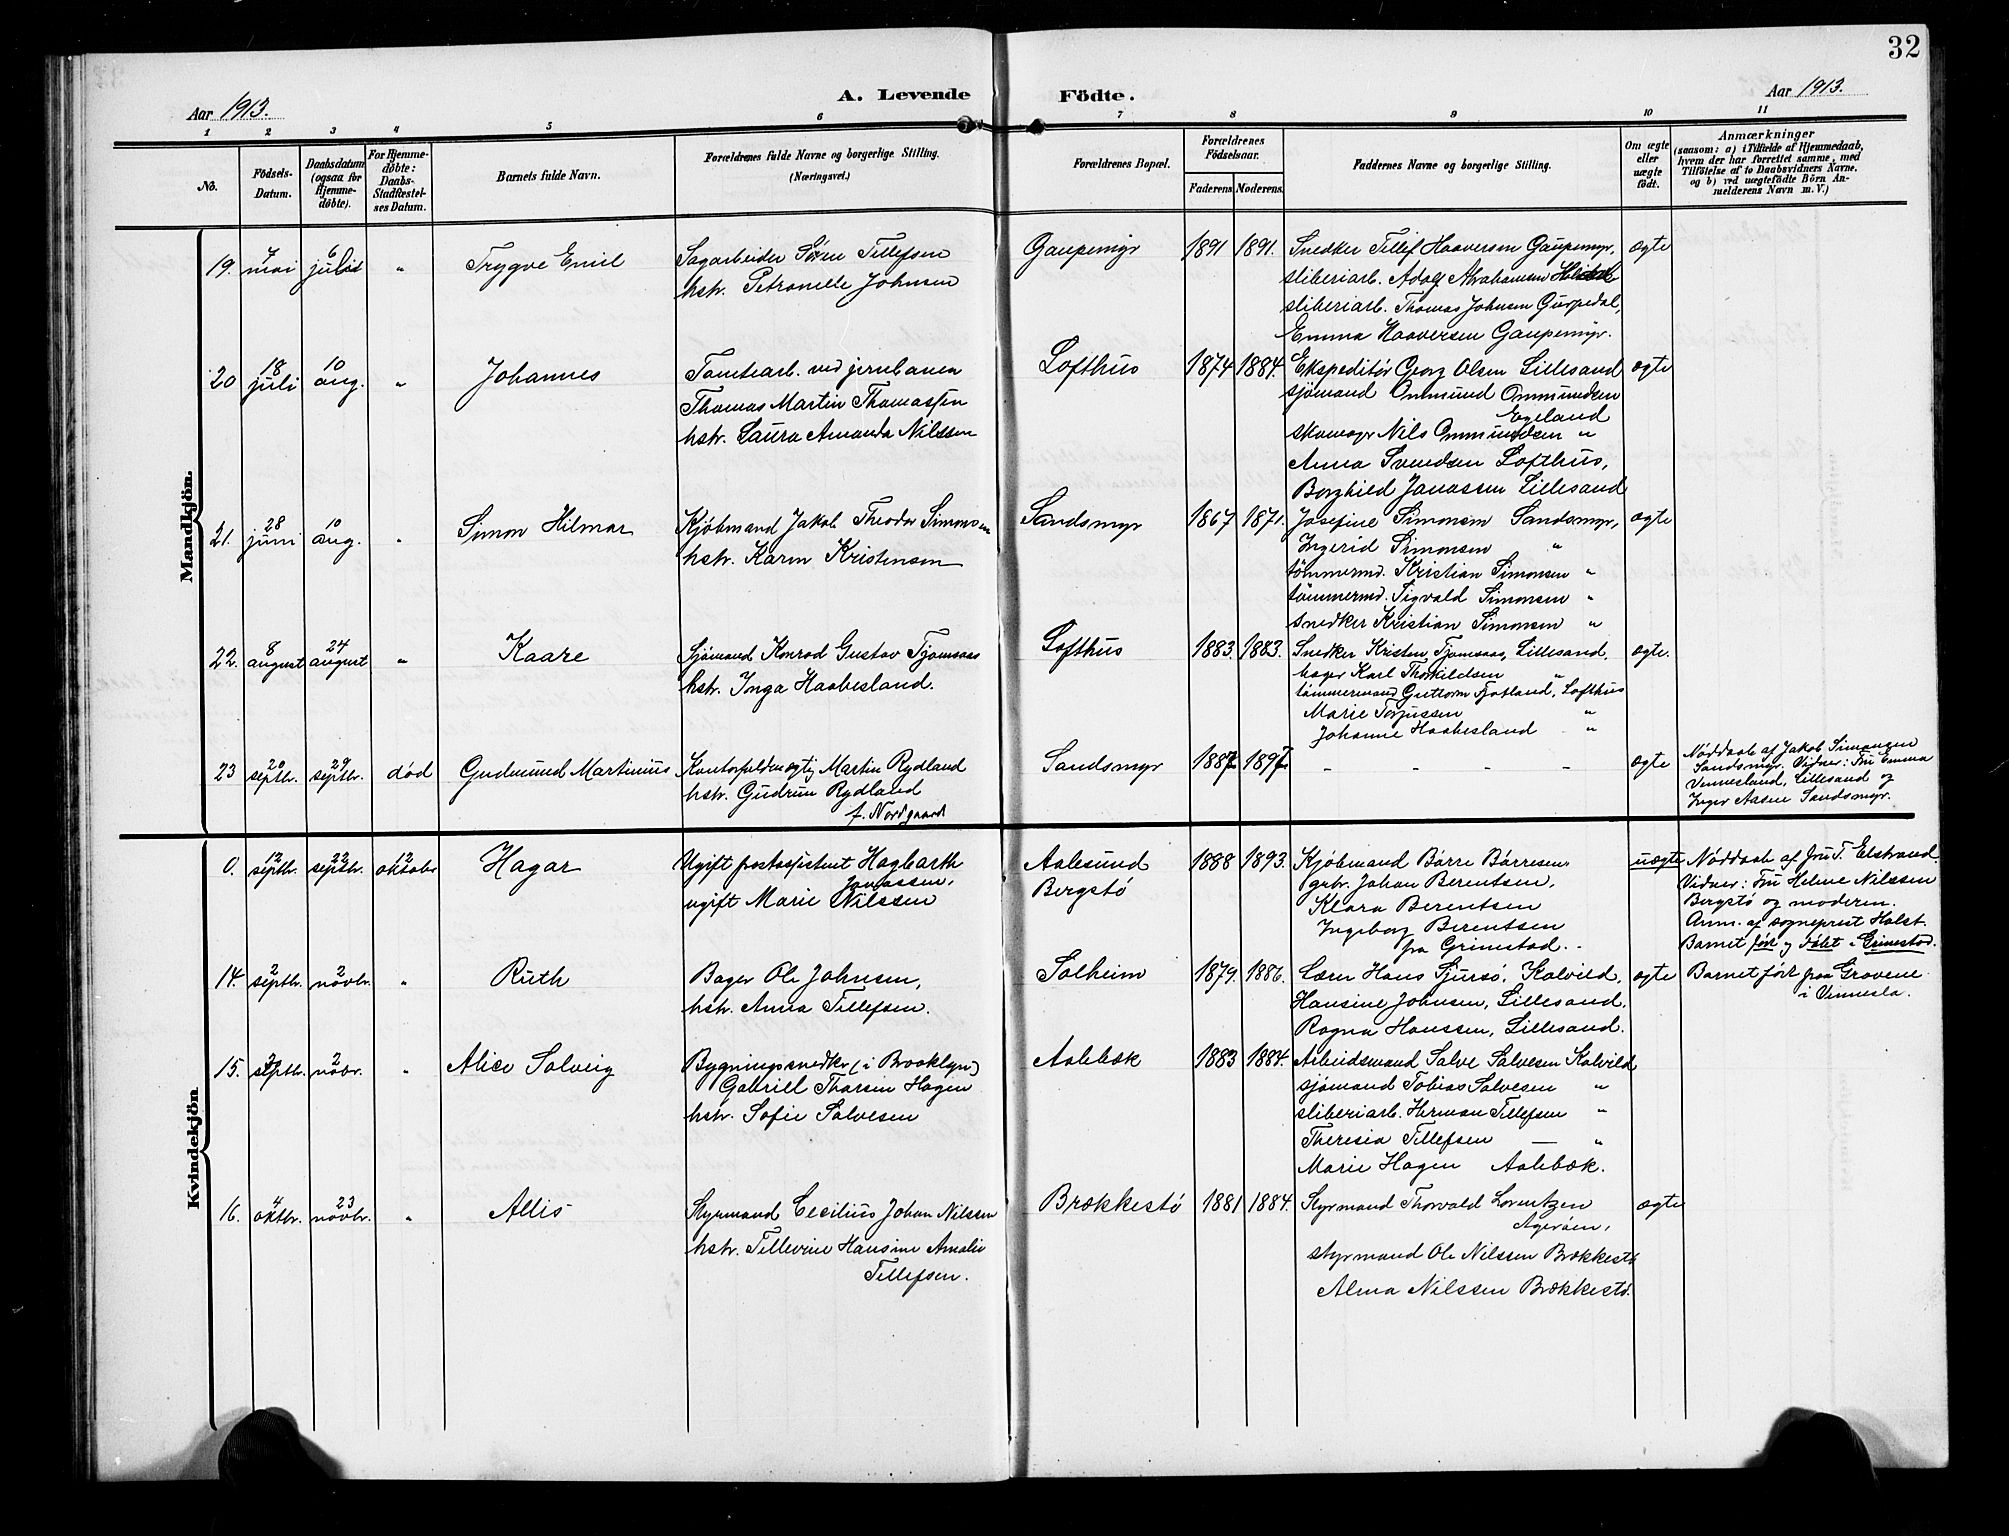 32
Aar 1913.
A. Levende
Födte.
Aar 1913.
1 2 3 4 5 6 7 8 9 10 11
No.
Födsels-Datum.
Daabsdatum (ogsaa for Hjemme-döbte).
For Hjemme-döbte: Daabs-Stadfæstel-ses Datum.
Barnets fulde Navn.
Forældrenes fulde Navne og borgerlige Stilling.
(Næringsvei.)
Forældrenes Bopæl.
Forældrenes Födselsaar.
Faderens. Moderens.
Faddernes Navne og borgerlige Stilling.
Om ægte eller uægte födt.
Anmærkninger
(saasom: a) i Tilfælde af Hjemmedaab,
hvem der har forrettet samme, med
Tilföielse af to Daabsvidners Navne,
og b) ved uægtefödte Börn An-
melderens Navn m. V.)
Mandkjön.
19. 7 mai 6 juli " Trygve Emil
Sagarbeider Sørn Tellefsen
hstr. Petronelle Johnsen
Gaupemyr 1891 1891.
Snedker Tellef Haaversen Gaupemyr,
sliberiarb. Adolf Abrahamsen
sliberiarb. Thomas Johnsen Gurpedal,
Emma Haaversen Gaupemyr.
ægte
20 18 juli 10 aug. " Johannes
Tomtearb. ved jernbanen
Thomas Martin Thomassen
hstr. Laura Amanda Nilssen
Lofthus 1874 1884.
Ekspeditør Georg Olsen Lillesand
sjømand Ommund Ommundsen
Egeland
skomagr Nils Ommundsen "
Anna Svendsen Lofthus,
Borghild Janassen Lillesand
ægte
21. 28 juni 10 aug. " Simon Hilmar
Kjøbmand Jakob Theodor Simonsen
hstr. Karen Kristensen
Sandsmyr 1867 1871.
Josefine Simonsen Sandsmyr,
Ingerid Simonsen "
tömmermd. Kristian Simonsen "
tömmermd. Sigvald Simonsen "
snedker Kristian Simonsen "
ægte
22. 8 august 24 august " Kaare
Sjömand Konrad Gustav Tjomsaas
hstr. Inga Haabesland.
Lofthus 1883. 1883.
Snedker Kristen Tjomsaas, Lillesand,
bager Karl Thorkildsen "
tömmermand Guttorm Fjotland, Lofthus
Marie Torjussen "
Johanne Haabesland "
ægte.
23 20 septbr. 29 septbr. død Gudmund Martinius
Kontorfuldmægtig Martin Rydland
hstr. Gudrun Rydland
f. Nordgaard
Sandsmyr 1887 1897
- - - - -
ægte
Nøddaab af Jakob Simonsen
Sandsmyr. Vidner: Fru Emma
Vennesland, Lillesand og
Inger Aasen Sandsmyr.
Kvindekjön
0. 12 septbr. 22 septbr. 12 oktober Hagar
Ugift postassistent Hagbarth
Janassen,
ugift Marie Nilssen
Aalesund
Bergstø
1888 1893.
Kjøbmand Børre Børresen,
grbr. Johan Berentsen,
Klara Berentsen
Ingeborg Berentsen
fra Grimstad.
uægte
Nøddaab af fru T. Elstrand.
Vidner: Fru Helene Nilssen
Bergstø og moderen.
Anm. af sogneprest Holst.
Barnet født og døbt i Grimstad.
14. 2 septbr. 2 novbr. " Ruth
Bager Ole Johnsen,
hstr. Anna Tellefsen.
Solheim 1879. 1886.
Lærer Hans Sjursø, Kalvild,
Hansine Johnsen, Lillesand,
Ragna Hanssen, Lillesand.
ægte
Barnet født paa Grovene
i Vennesla.
15. septbr. 2 nobr. " Alice Solveig
Bygningssnedker (i Brooklyn)
Gabriell Tharsen Hagen
hstr. Sofie Salvesen
Aalebæk 1883 1884.
Arbeidsmand Salve Salvesen Kalvild
sjømand Tobias Salvesen "
sliberiarb. Herman Tellefsen "
Theresia Tellefsen — "
Marie Hagen Aalebæk.
16. 4 oktbr. 23 novbr. " Allis
Styrmand Cecilius Johan Nilssen
hstr. Tellevine Hansine Amalie
Tellefsen.
Brækkestø 1881 1884.
Styrmand Thorvald Lorentzen
Agerøen,
styrmand Ole Nilssen Brækkestø
Alma Nilssen Brækkestø.
ægte